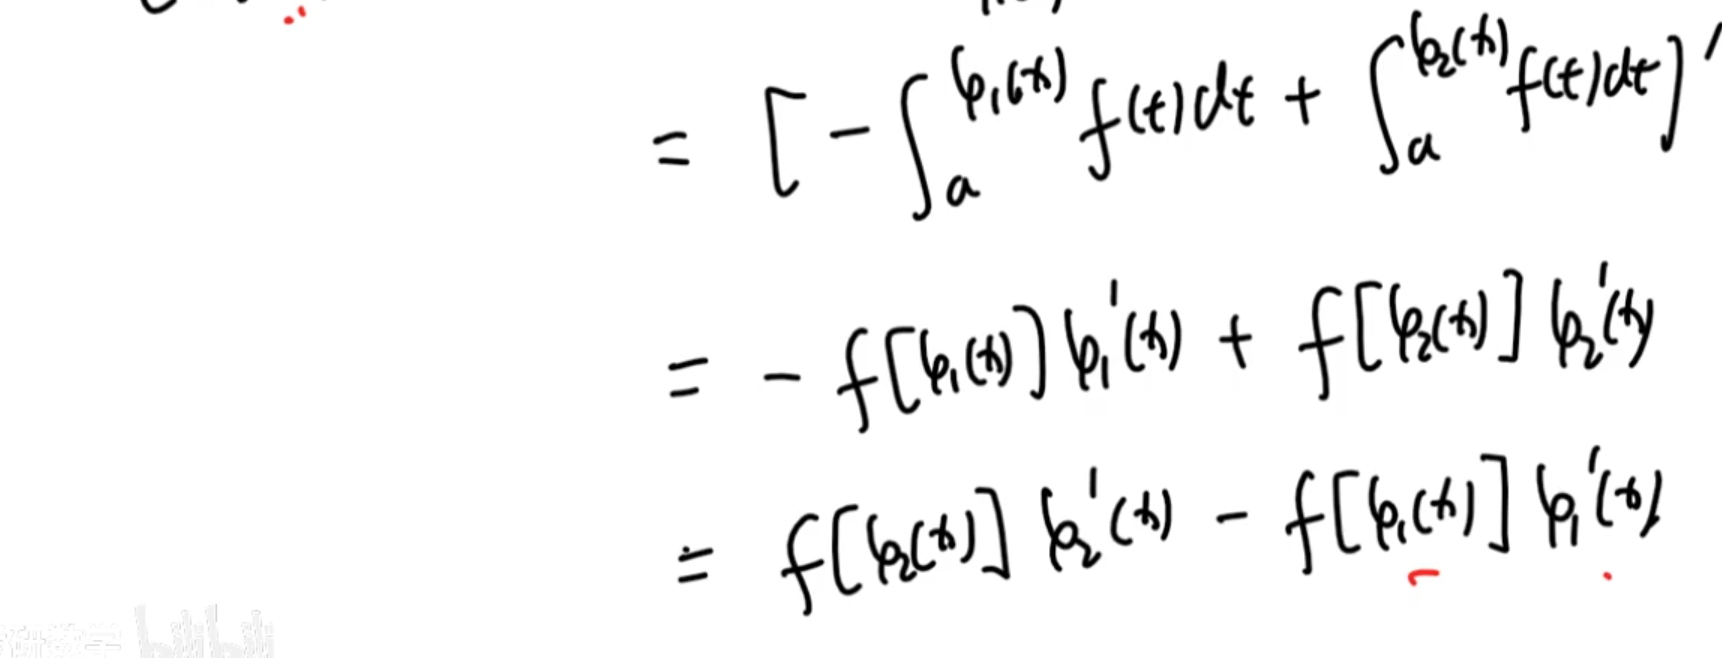 = [ - ∫ₐ^{φ₁(x)} f(t)dt + ∫ₐ^{φ₂(x)} f(t)dt ]'
= - f[φ₁(x)] φ₁'(x) + f[φ₂(x)] φ₂'(x)
= f[φ₂(x)] φ₂'(x) - f[φ₁(x)] φ₁'(x)
研数学 bilibili